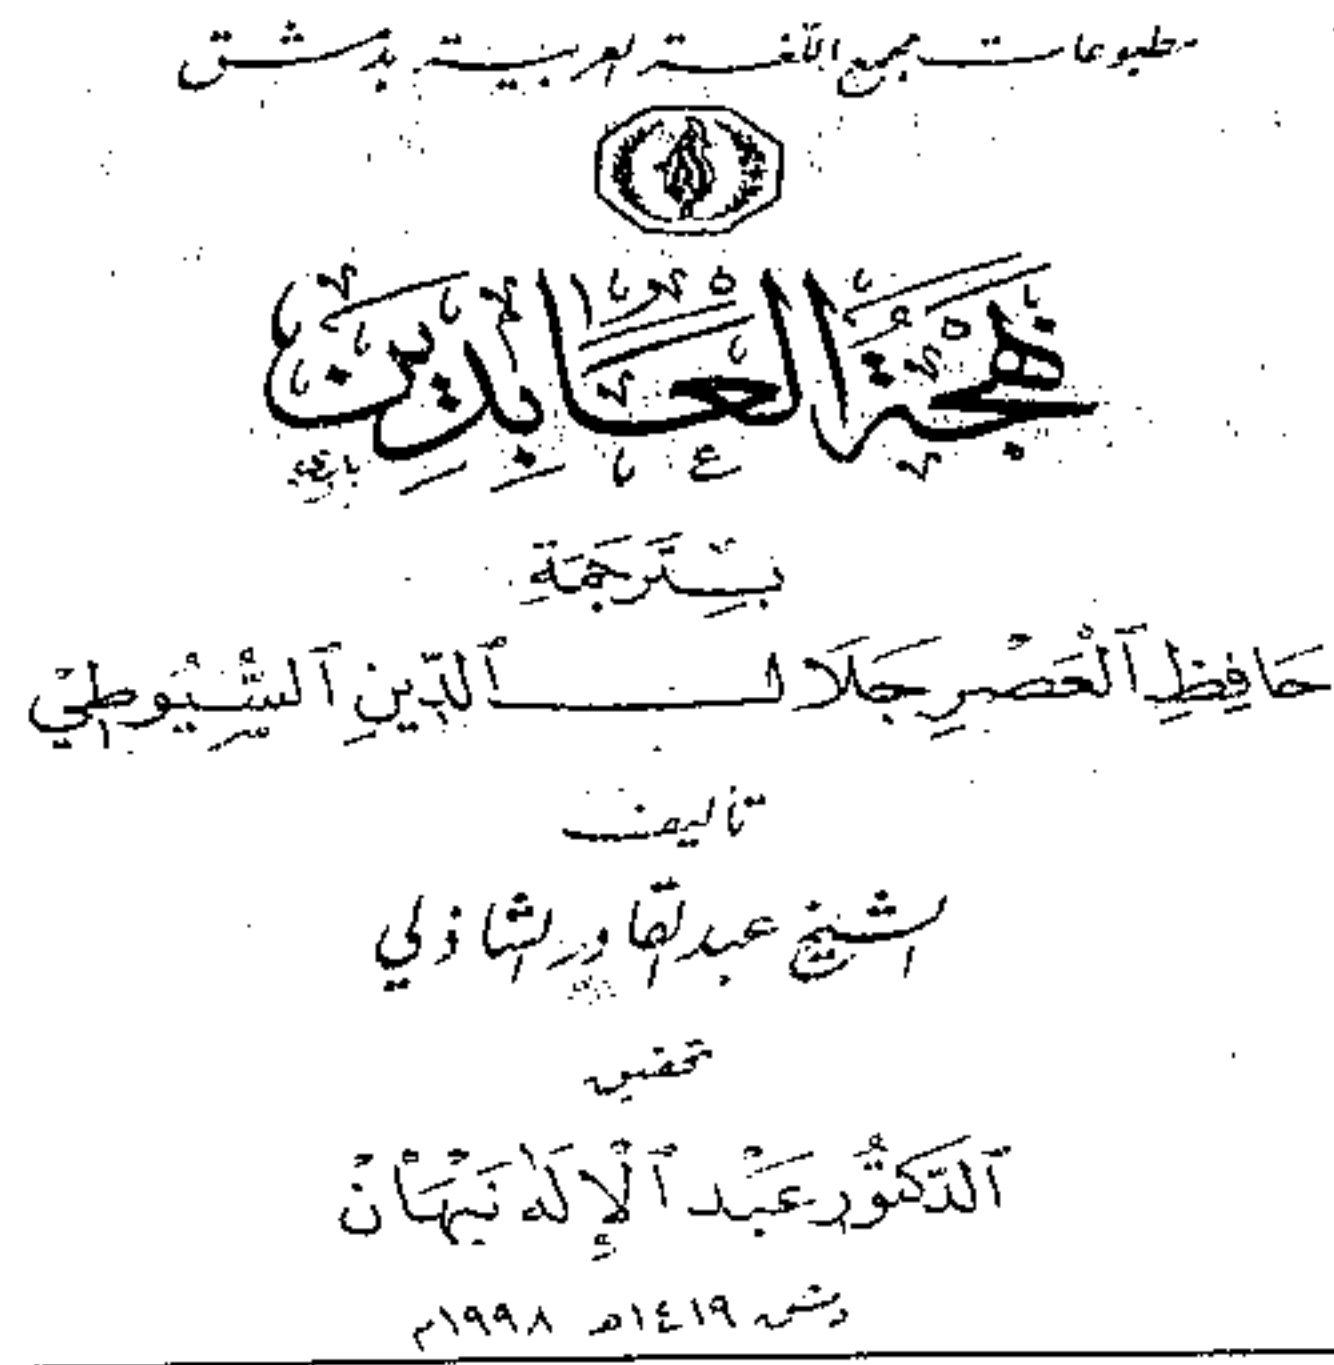 مطبوعات مجمع اللغة العربية بدمشق
بهجة العابدين
بِتَرجَمَةِ
حَافِظِ ٱلْعَصْرِ جَلَالِ ٱلدِّينِ ٱلسُّيُوطِيّ
تأليف
الشيخ عبدالقادر الشاذلي
تحقيق
ٱلدّكتُور عَبْد ٱلْإِلَٰه نَبْهَانْ
دمشق ١٤١٩هـ ١٩٩٨م